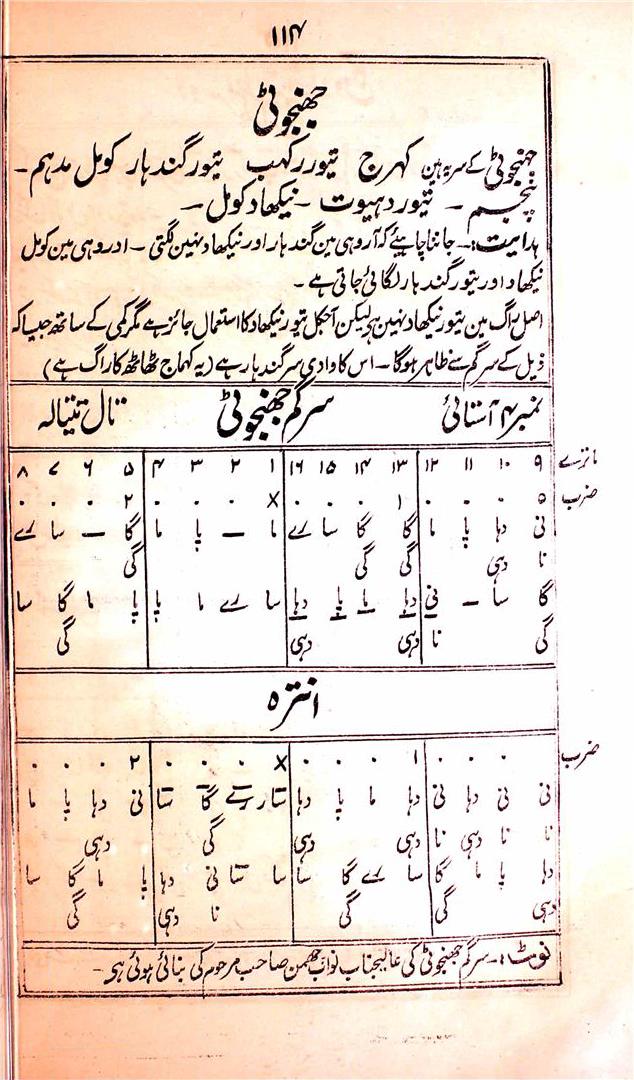 ۱۱۴
جھنجوٹی
جھنجوٹی کے سر یہ ہین کہرج تیور رکھب تیور گندہار کومل مدہم ۔
پنچم ۔ تیور دہیوت ۔ نیکھاد کومل ۔
ہدایت :۔ جاننا چاہیئے کہ آروہی مین گندہار اور نیکھاد نہین لگتی ۔ ادروہی مین کومل
نیکھاد اور تیور گندہار لگائی جاتی ہے ۔
اصل راگ مین تیور نیکھاد نہین ہی لیکن آجکل تیور نیکھاد کا استعمال جائز ہے مگر کمی کے ساتھ جیسا کہ
ذیل کے سرگم سے ظاہر ہوگا ۔ اس کا وادی سر گندہار ہے (یہ کہماج ٹھاٹھ کا راگ ہے)
نمبر ۴ آستائی سرگم جھنجوٹی تال تیتالہ
ماترے ۹ ۱۰ ۱۱ ۱۲ ۱۳ ۱۴ ۱۵ ۱۶ ۱ ۲ ۳ ۴ ۵ ۶ ۷ ۸
ضرب ۵ ۰ ۰ ۰ ۱ ۰ ۰ ۰ X ۰ ۰ ۰ ۲ ۰ ۰ ۰
نی دہا پا ما گا گا سا رے ما – پا ما گا – سا رے
نا دہی گی گی گی
گا سا – نی دہا ما پا دہا سا رے ما پا پا ما گا سا
گی نا دہی دہی گی
انترہ
ضرب ۰ ۰ ۰ ۱ ۰ ۰ ۰ X ۰ ۰ ۰ ۲ ۰ ۰ ۰
نی نی دہا نی دہا ما پا دہا سا رے گا سا نی دہا پا ما
نا نا دہی نا دہی دہی گی دہی
دہا پا ما گا سا رے گا سا سا سا نی دہا پا ما گا سا
دہی گی گی نا دہی گی
نوٹ :۔ سرگم جھنجوٹی کی عالیجناب نواب چھمن صاحب مرحوم کی بنائی ہوئی ہی ۔